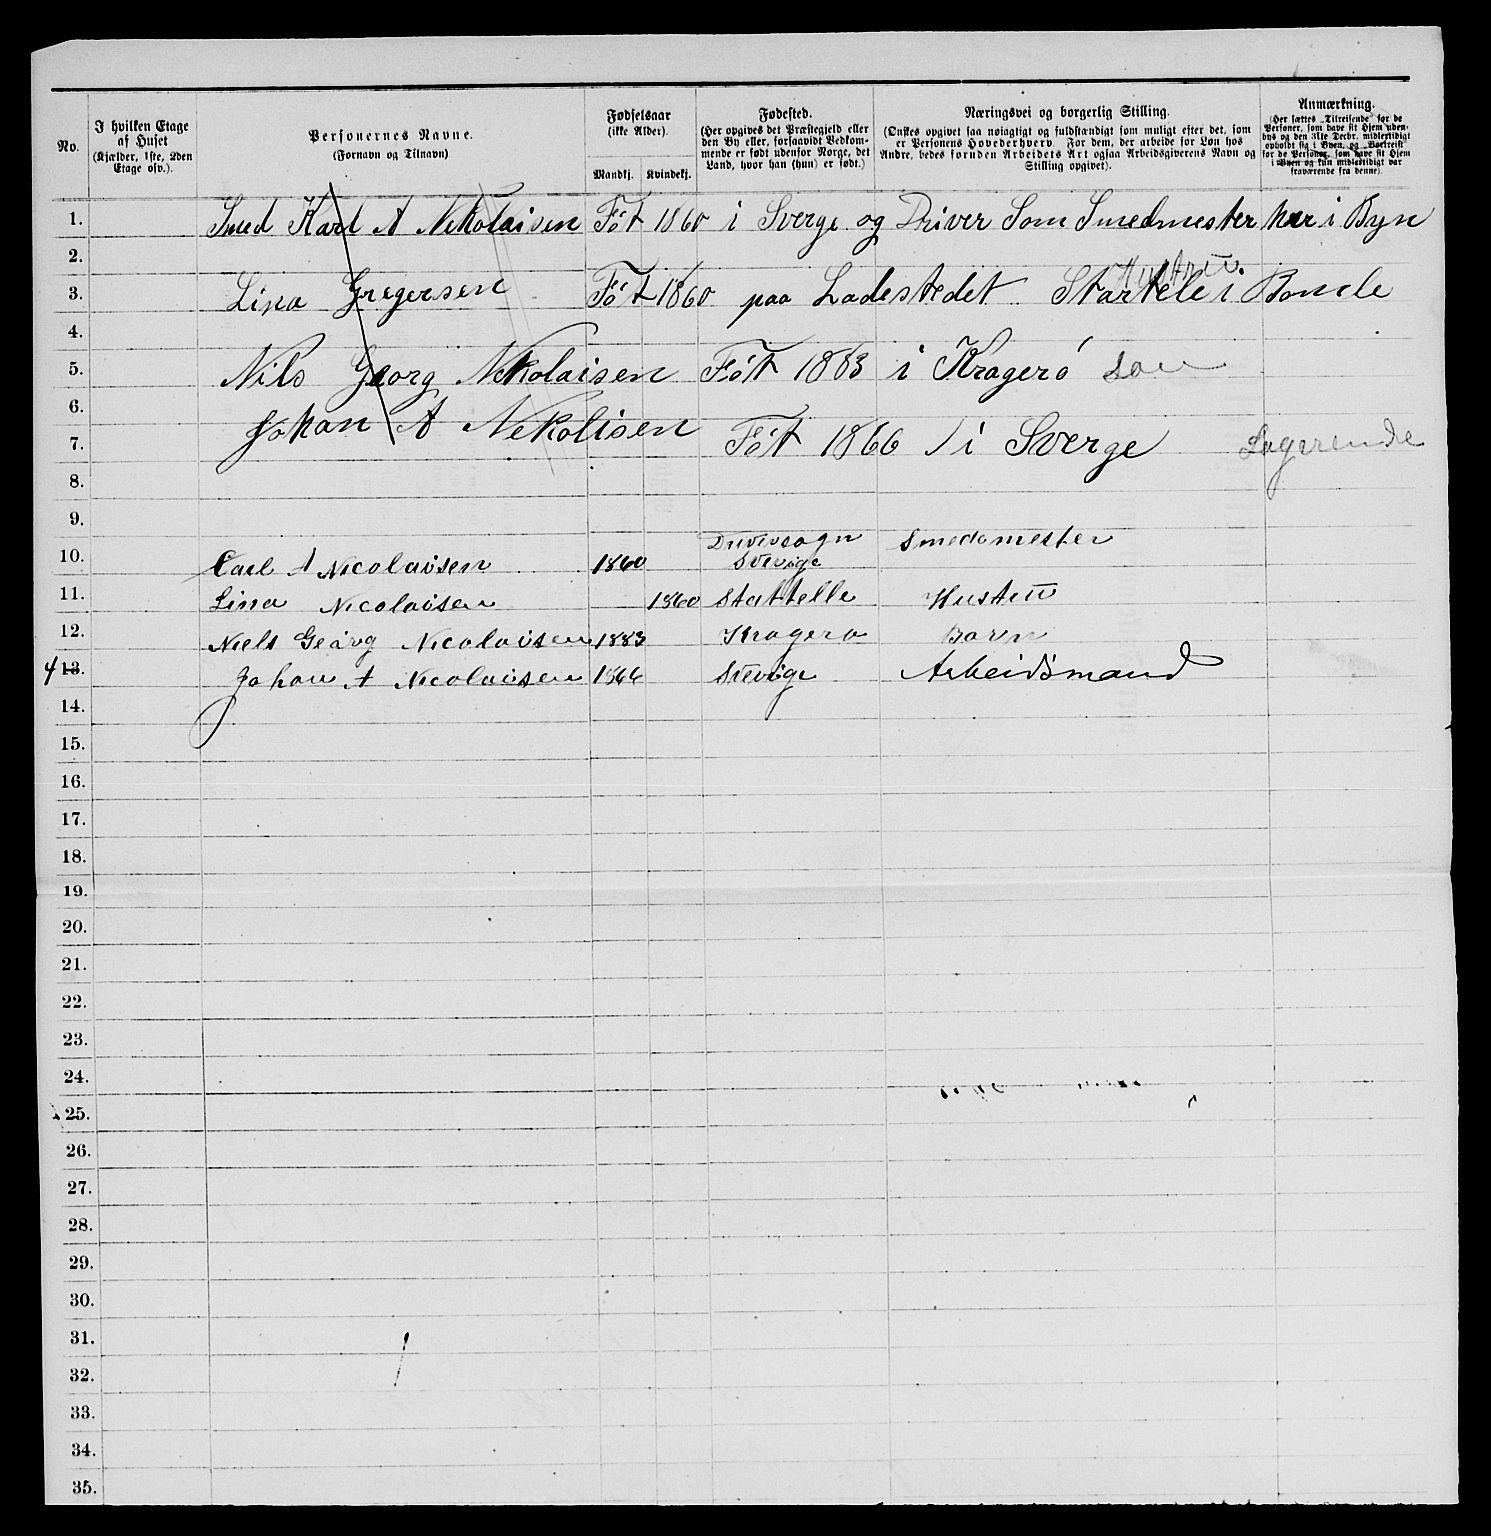 No.
I hvilken Etage
af Huset
(Kjælder, 1ste, 2den
Etage osv.).
Personernes Navne.
(Fornavn og Tilnavn)
Fødselsaar
(ikke Alder).
Mandkj. Kvindekj.
Fødested.
(Her opgives det Præstegjeld eller
den By eller, forsaavidt Vedkom-
mende er født udenfor Norge, det
Land, hvor han (hun) er født.)
Næringsvei og borgerlig Stilling.
(Ønskes opgivet saa nøiagtigt og fuldstændigt som muligt efter det, som
er Personens Hovederhverv. For dem, der arbeide for Løn hos
Andre, bedes foruden Arbeidets Art ogsaa Arbeidsgiverens Navn og
Stilling opgivet).
Anmærkning.
(Her sættes „Tilreisende“ for de
Personer, som have sit Hjem uden-
bys og den 31te Decbr. midlertidigt
opholdt sig i Byen, og „Bortreist“
for de Personer, som have sit Hjem
i Byen og kun midlertidigt var
fraværende fra denne).
1. Smed Karl A Nekolaisen Föt 1860 i Sverge og Driver Som Smedmester her i Byn
2. Hustru
3. Lina Gregersen Föt 1860 paa Ladestedet Startele i Bamle
4.
5. Nils Georg Nekolaisen Föt 1883 i Kragerö Søn
6. Johan A Nekolisen
7. Föt 1866 i Sverge Logerende
8.
9.
10. Carl A Nicolaisen 1860 Sverige Smedemester
11. Lina Nicolaisen 1860 Stattelle Hustru
12. Niels Georg Nicolaisen 1883 Kragerø Barn
4 13. Johan A Nicolaisen 1866 Sverige Arbeidsmand
14.
15.
16.
17.
18.
19.
20.
21.
22.
23.
24.
25.
26.
27.
28.
29.
30.
31.
32.
33.
34.
35.